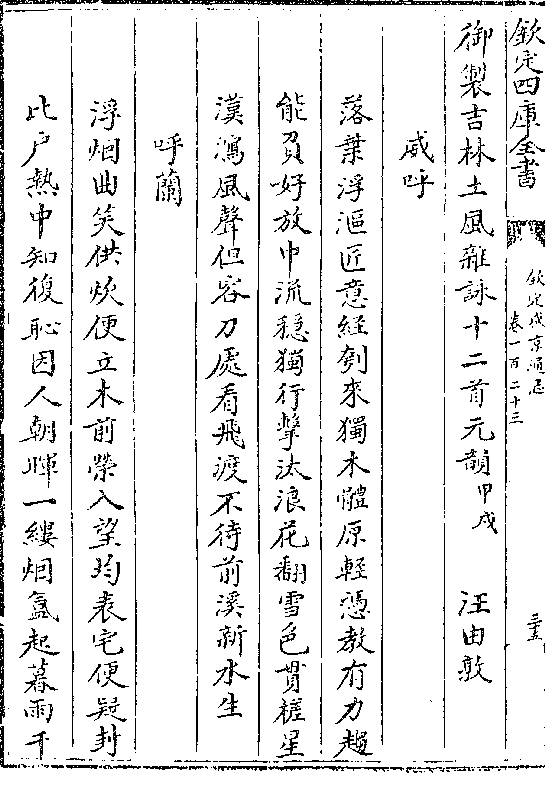 欽定四庫全書
欽定盛京通志
卷一百二十三
三五
御製吉林土風雜詠十二首元韻甲戌 汪由敦
威呼
落葉浮漚匠意經刳來獨木體原輕憑教有力趨
能負好放中流穩獨行擊汰浪花翻雪色貫槎星
漢瀉風聲但容刀處看飛渡不待前溪新水生
呼蘭
浮烟曲突供炊便立木前榮入望均表宅便疑封
比户熱中知復恥因人朝暉一縷烟氳起暮雨千